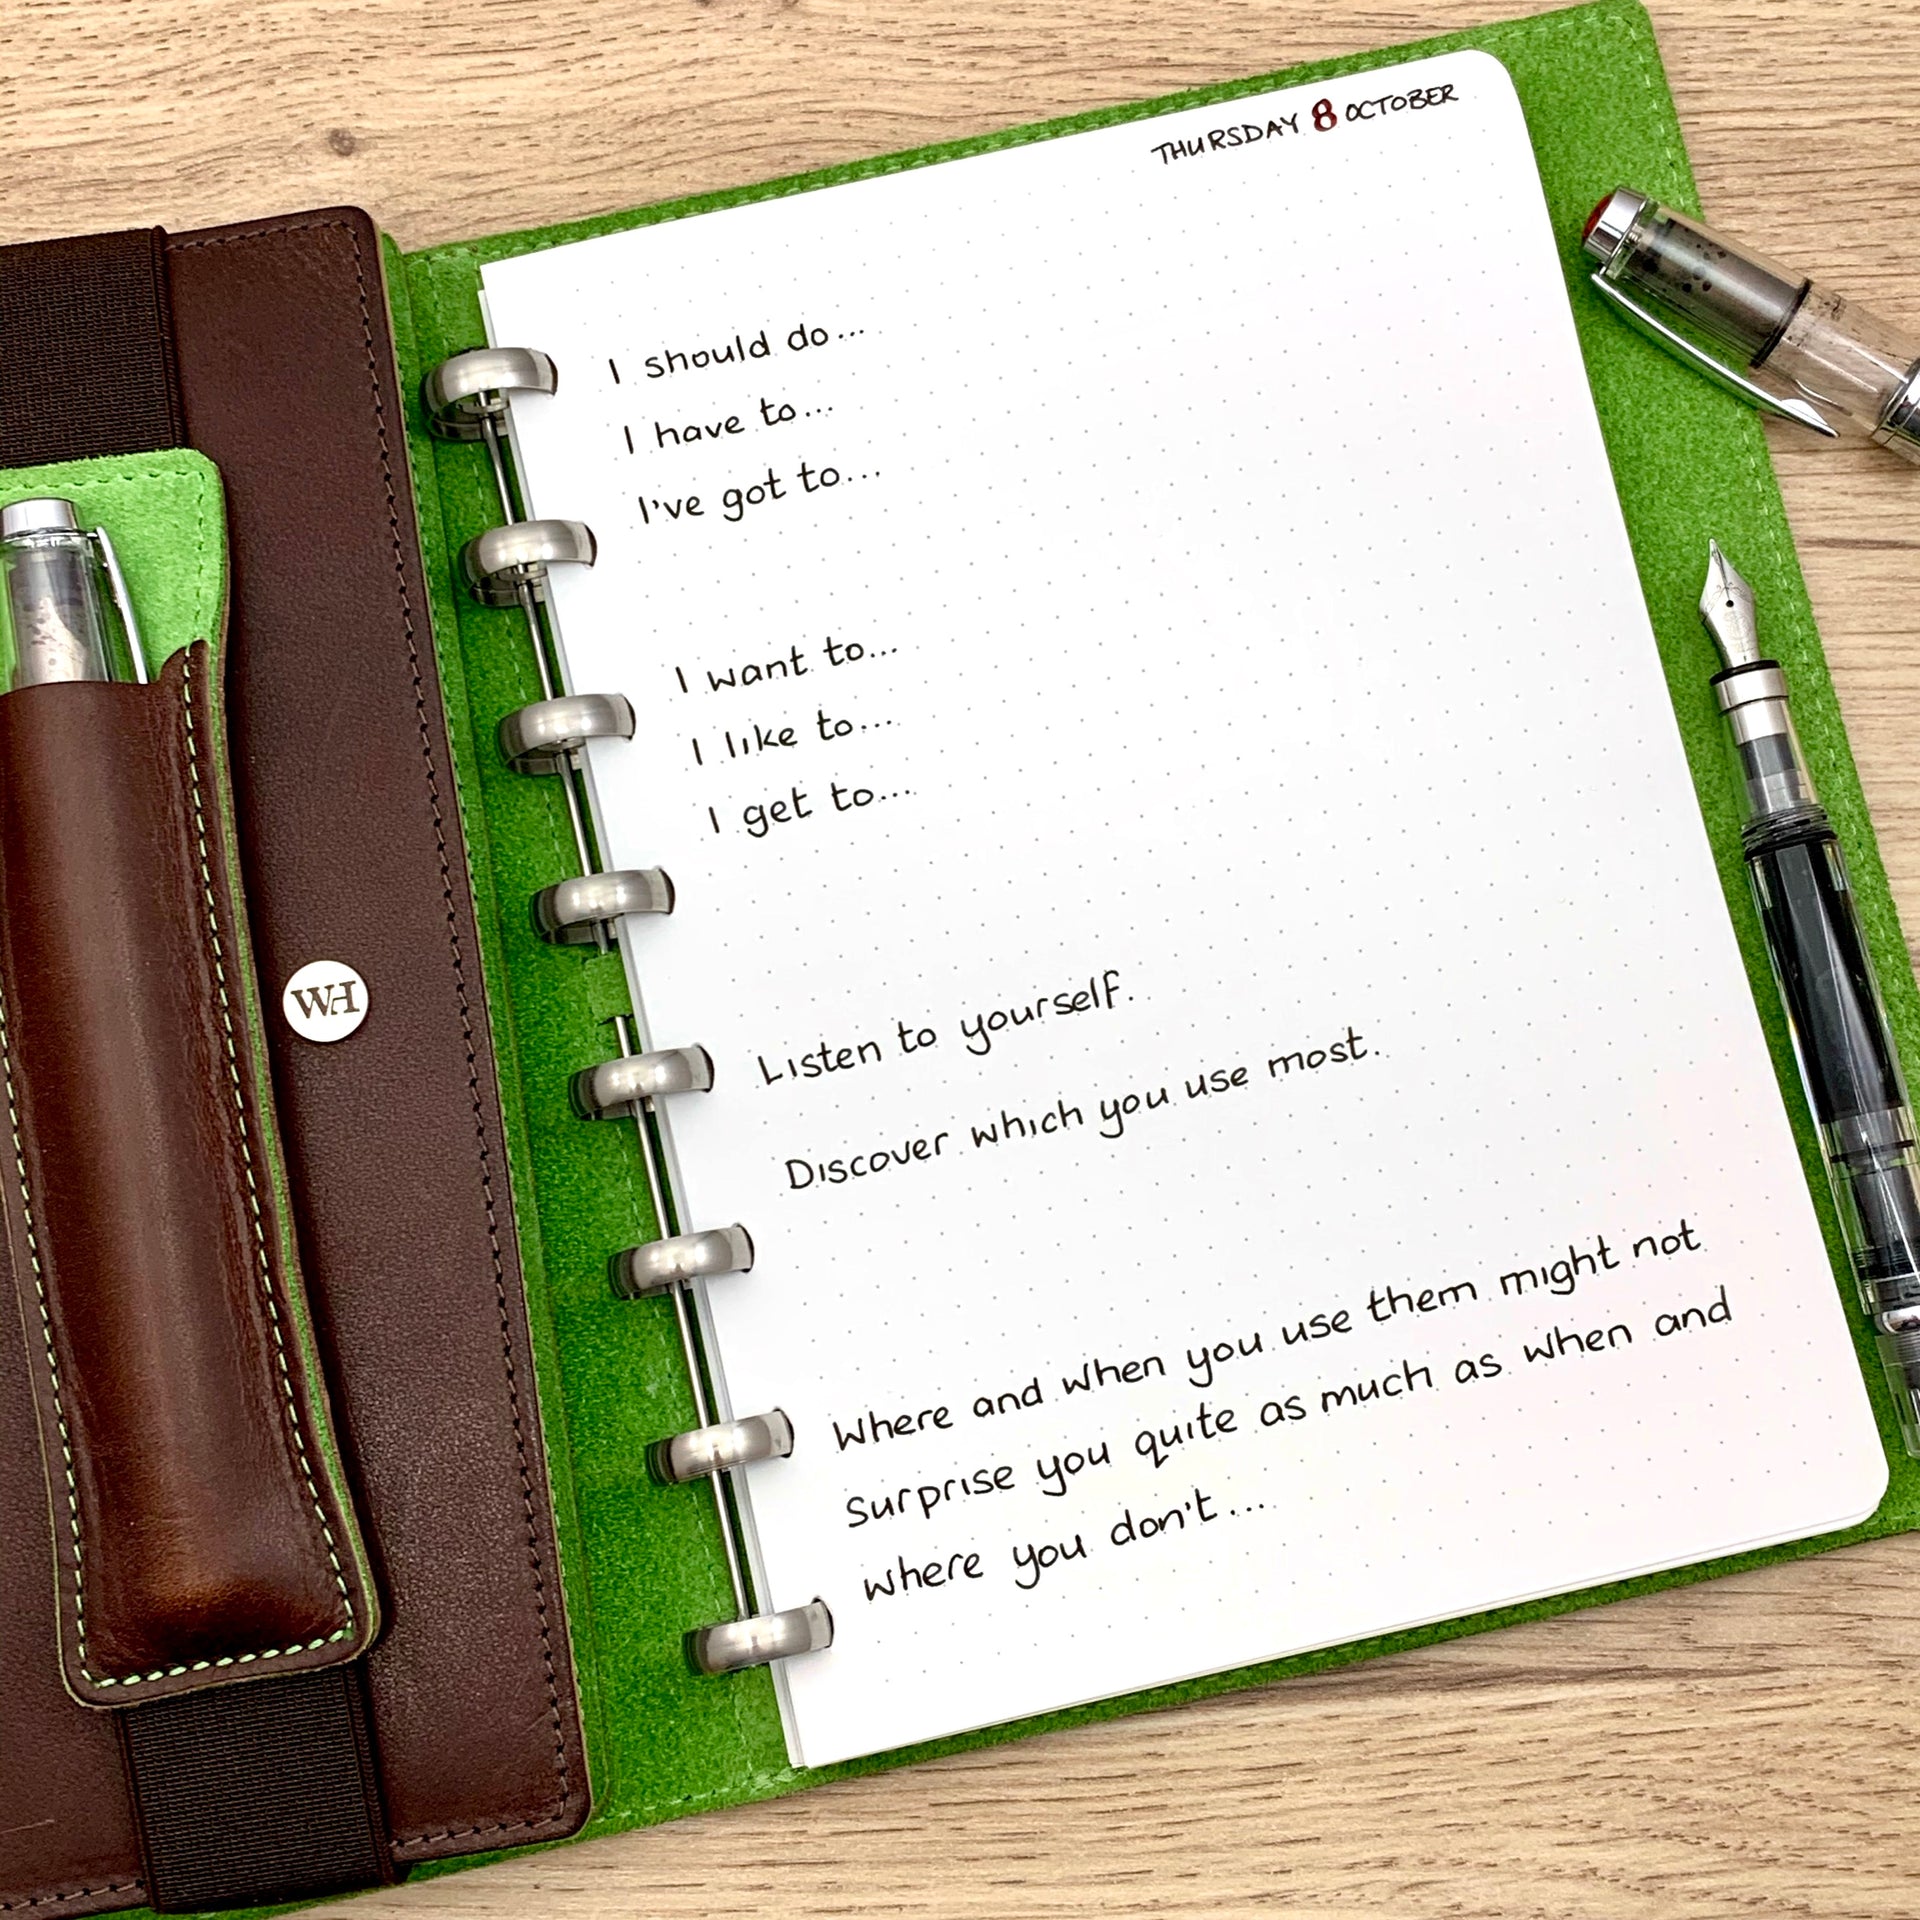 THURSDAY 8 OCTOBER
I should do...
I have to...
I've got to...
I want to...
I like to...
I get to...
WH
Listen to yourself.
Discover which you use most.
Where and when you use them might not
surprise you quite as much as when and
where you don't...